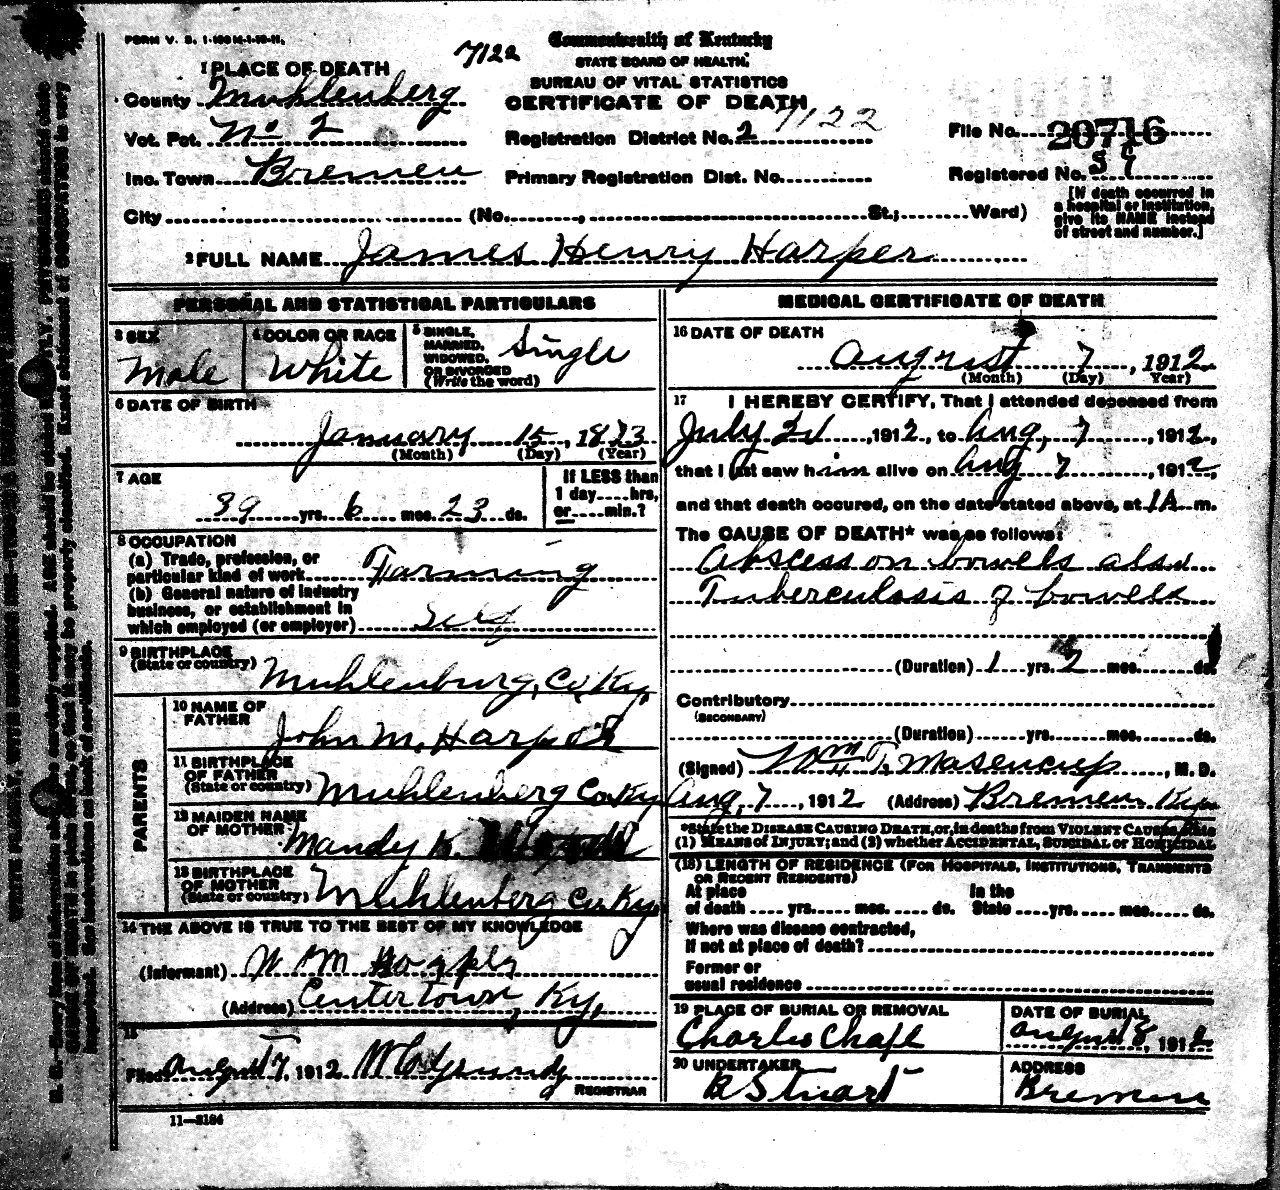 FORM V. S. 1-100M-1-10-11.
7122
Commonwealth of Kentucky
STATE BOARD OF HEALTH.
BUREAU OF VITAL STATISTICS
CERTIFICATE OF DEATH
1 PLACE OF DEATH
County Muhlenberg
Vot. Pct. No 2
Inc. Town Bremen
City (No. , St.; Ward)
Registration District No. 2 7122
Primary Registration Dist. No.
File No. 20716
Registered No.
[If death occurred in a hospital or institution, give its NAME instead of street and number.]
2 FULL NAME James Henry Harper
PERSONAL AND STATISTICAL PARTICULARS
3 SEX
Male
4 COLOR OR RACE
White
5 SINGLE, MARRIED, WIDOWED, OR DIVORCED (Write the word)
Single
6 DATE OF BIRTH
January 15, 1873
(Month) (Day) (Year)
7 AGE
39 yrs. 6 mos. 23 ds.
If LESS than
1 day....hrs,
or....min.?
8 OCCUPATION
(a) Trade, profession, or
particular kind of work Farming
(b) General nature of industry
business, or establishment in
which employed (or employer) Self
9 BIRTHPLACE
(State or country) Muhlenburg, Co, Ky,
PARENTS
10 NAME OF FATHER
John M. Harper
11 BIRTHPLACE OF FATHER
(State or country) Muhlenberg Co Ky
12 MAIDEN NAME OF MOTHER
Mandy K.
13 BIRTHPLACE OF MOTHER
(State or country) Muhlenberg Co. Ky.
14 THE ABOVE IS TRUE TO THE BEST OF MY KNOWLEDGE
(Informant) W M
(Address) Centertown, Ky,
15
Filed August 7, 1912
REGISTRAR
11—3184
MEDICAL CERTIFICATE OF DEATH
16 DATE OF DEATH
August 7, 1912
(Month) (Day) Year)
17 I HEREBY CERTIFY, That I attended deceased from
July 21, 1912, to Aug, 7 1912,
that I last saw him alive on Aug 7, 1912,
and that death occured, on the date stated above, at 1A m.
The CAUSE OF DEATH* was as follows:
Abscess on bowels also
Tuberculosis of bowels
(Duration) 1 yrs. 2 mos. ds.
Contributory
(SECONDARY)
(Duration) yrs. mos. ds.
(Signed) Wm T. Masencup, M. D.
Aug, 7, 1912 (Address) Bremen Ky
*State the DISEASE CAUSING DEATH, or, in deaths from VIOLENT CAUSES, state
(1) MEANS OF INJURY; and (2) whether ACCIDENTAL, SUICIDAL or HOMICIDAL
(18) LENGTH OF RESIDENCE (FOR HOSPITALS, INSTITUTIONS, TRANSIENTS
OR RECENT RESIDENTS)
At place In the
of death yrs. mos. ds. State yrs. mos. ds.
Where was disease contracted,
if not at place of death?
Former or
usual residence
19 PLACE OF BURIAL OR REMOVAL
Charles Chapl
DATE OF BURIAL
August 8, 1912
20 UNDERTAKER
R Stuart
ADDRESS
Bremen